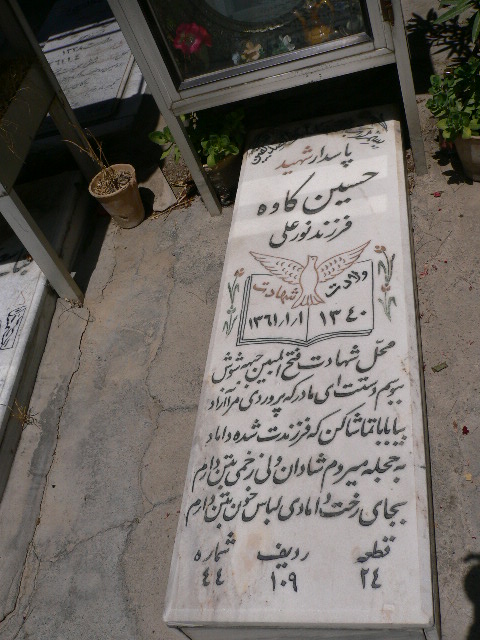 پاسدار شهید
حسین کاوه
فرزند نورعلی
ولادت شهادت
۱۳۴۰ ۱۳۶۱/۱/۱
محل شهادت فتح المبین جبهه شوش
ببوسم دستت ای مادر که پروردی مرا آزاد
بیا بابا تماشا کن که فرزندت شده داماد
به حجله میروم شادان ولی زخمی بتن دارم
بجای رخت دامادی لباس خون بتن دارم
قطعه ردیف شماره
۲۴ ۱۰۹ ۴۴